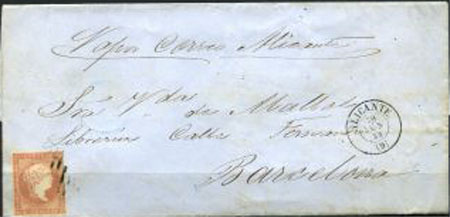 Vapor Correo Alicante
Sra Vda de Mattol
Libreria Calle Fernando
Barcelona
ALICANTE